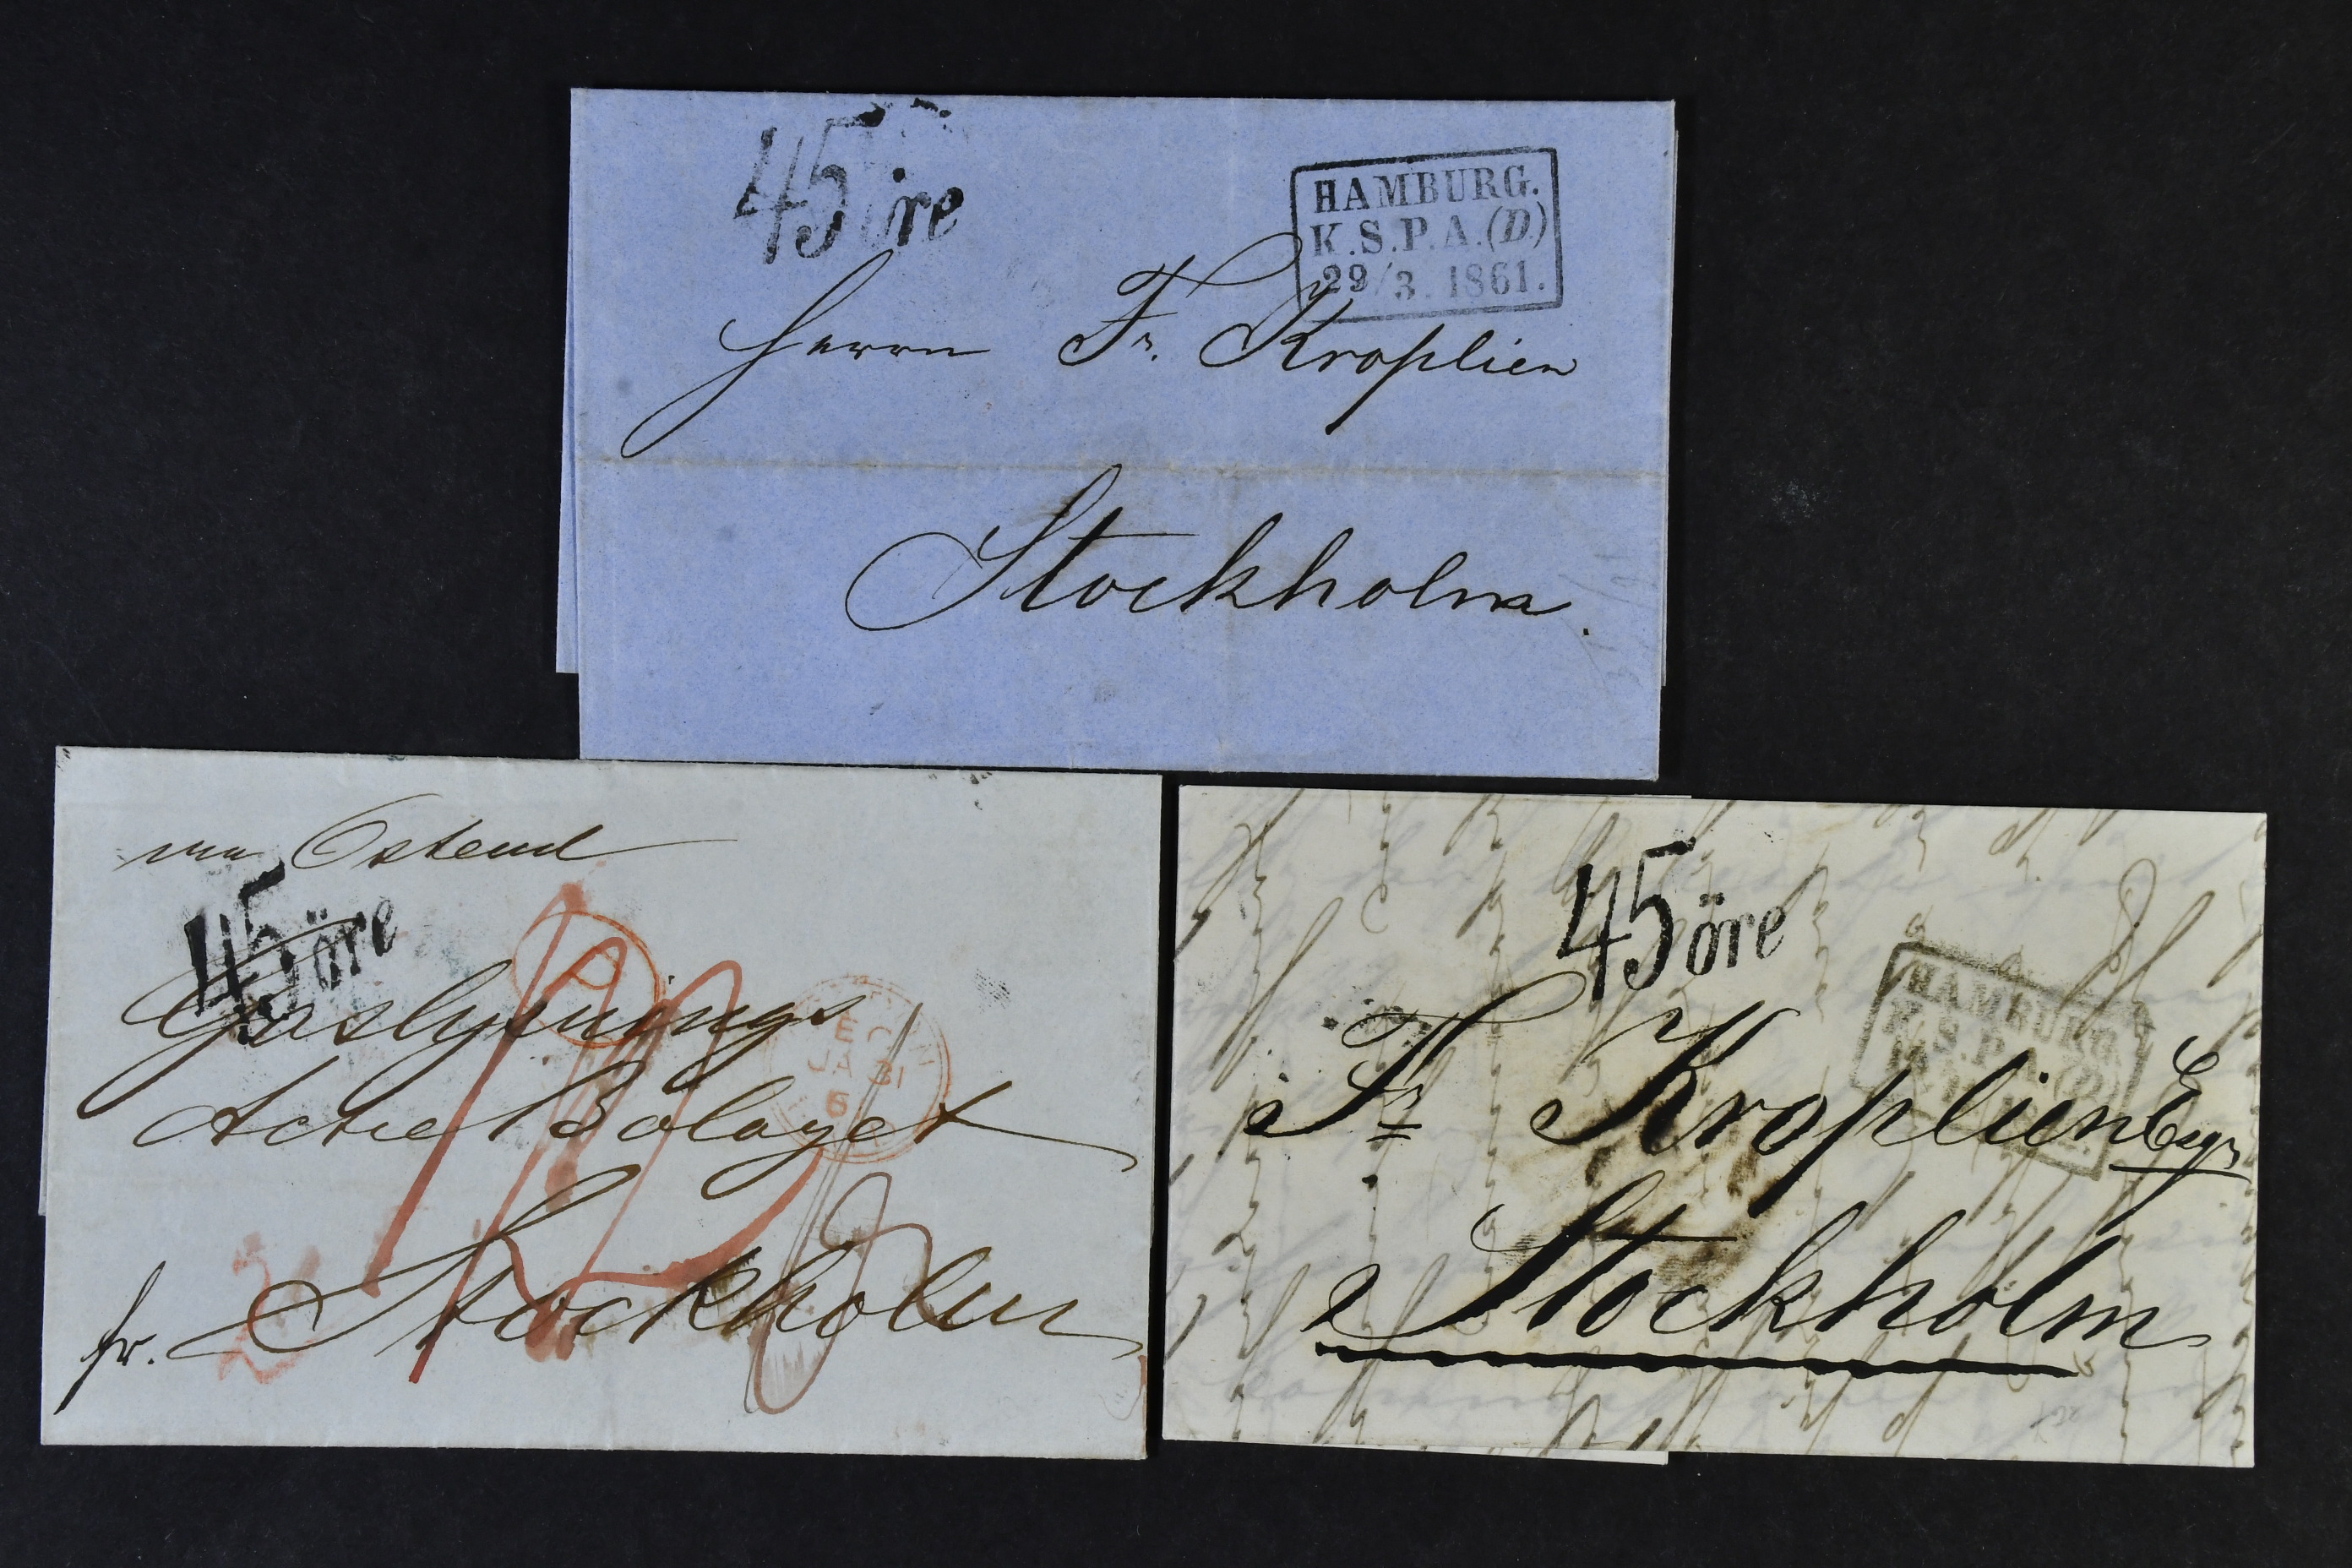 45 öre
HAMBURG.
K.S.P.A.(D.)
29/3. 1861.
Herrn Fr. Kroplien
Stockholm.
via Ostend
45 öre
Gaslysnings
Actie Bolaget
fr. Stockholm
JA 31
45 öre
HAMBURG.
K.S.P.A.(D.)
Fr Kroplien Esqr
Stockholm